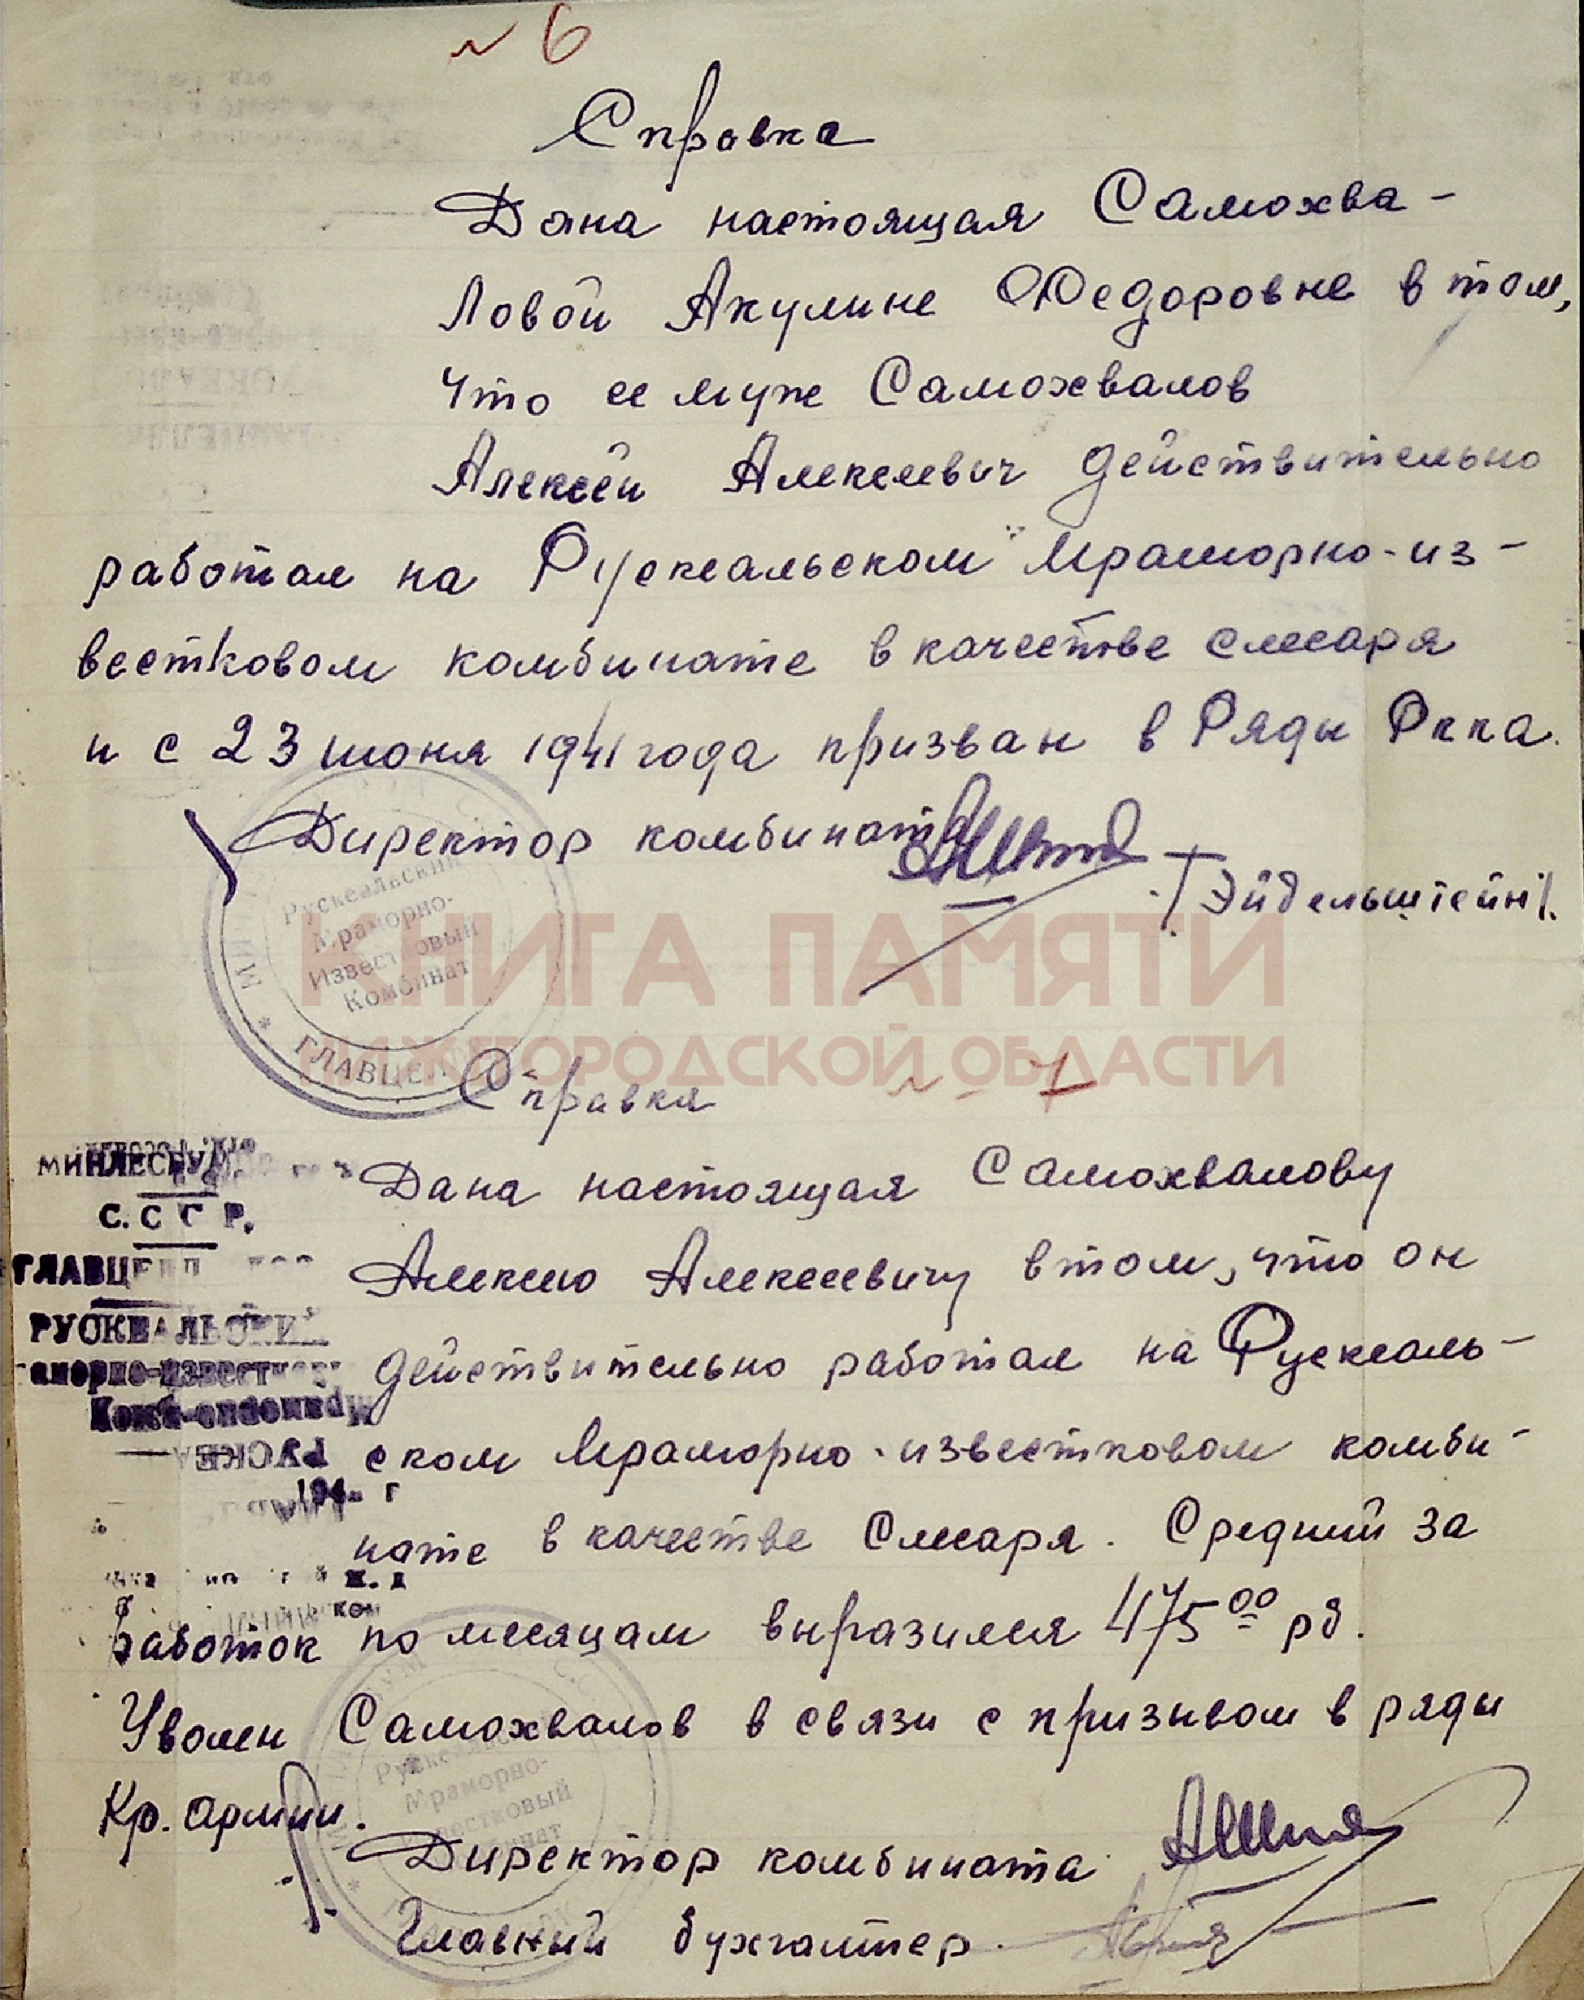 № 6
Справка
Дана настоящая Самохва-
ловой Акулине Федоровне в том,
что ее муж Самохвалов
Алексей Алексеевич действительно
работал на Рускеальском Мраморно-из-
вестковом комбинате в качестве слесаря
и с 23 июня 1941 года призван в Ряды Ркка.
Директор комбината
/Эйдельштейн/.
Рускеальский
Мраморно-
Известковый
Комбинат
ГЛАВЦЕЛ
КНИГА ПАМЯТИ
НИЖЕГОРОДСКОЙ ОБЛАСТИ
№ 7
Справка
МИНЛЕСБУМ
С.С.С.Р.
ГЛАВЦЕЛЛ
РУСКЕАЛЬСКИ
194 г
Дана настоящая Самохвалову
Алексею Алексеевичу в том, что он
действительно работал на Рускеаль-
ском Мраморно-известковом комби-
нате в качестве Слесаря. Средний за
работок по месяцам выразился 475 00 рб.
Уволен Самохвалов в связи с призывом в ряды
Кр. армии.
Рускеальский
Мраморно-
Известковый
Комбинат
Директор комбината
Главный бухгалтер